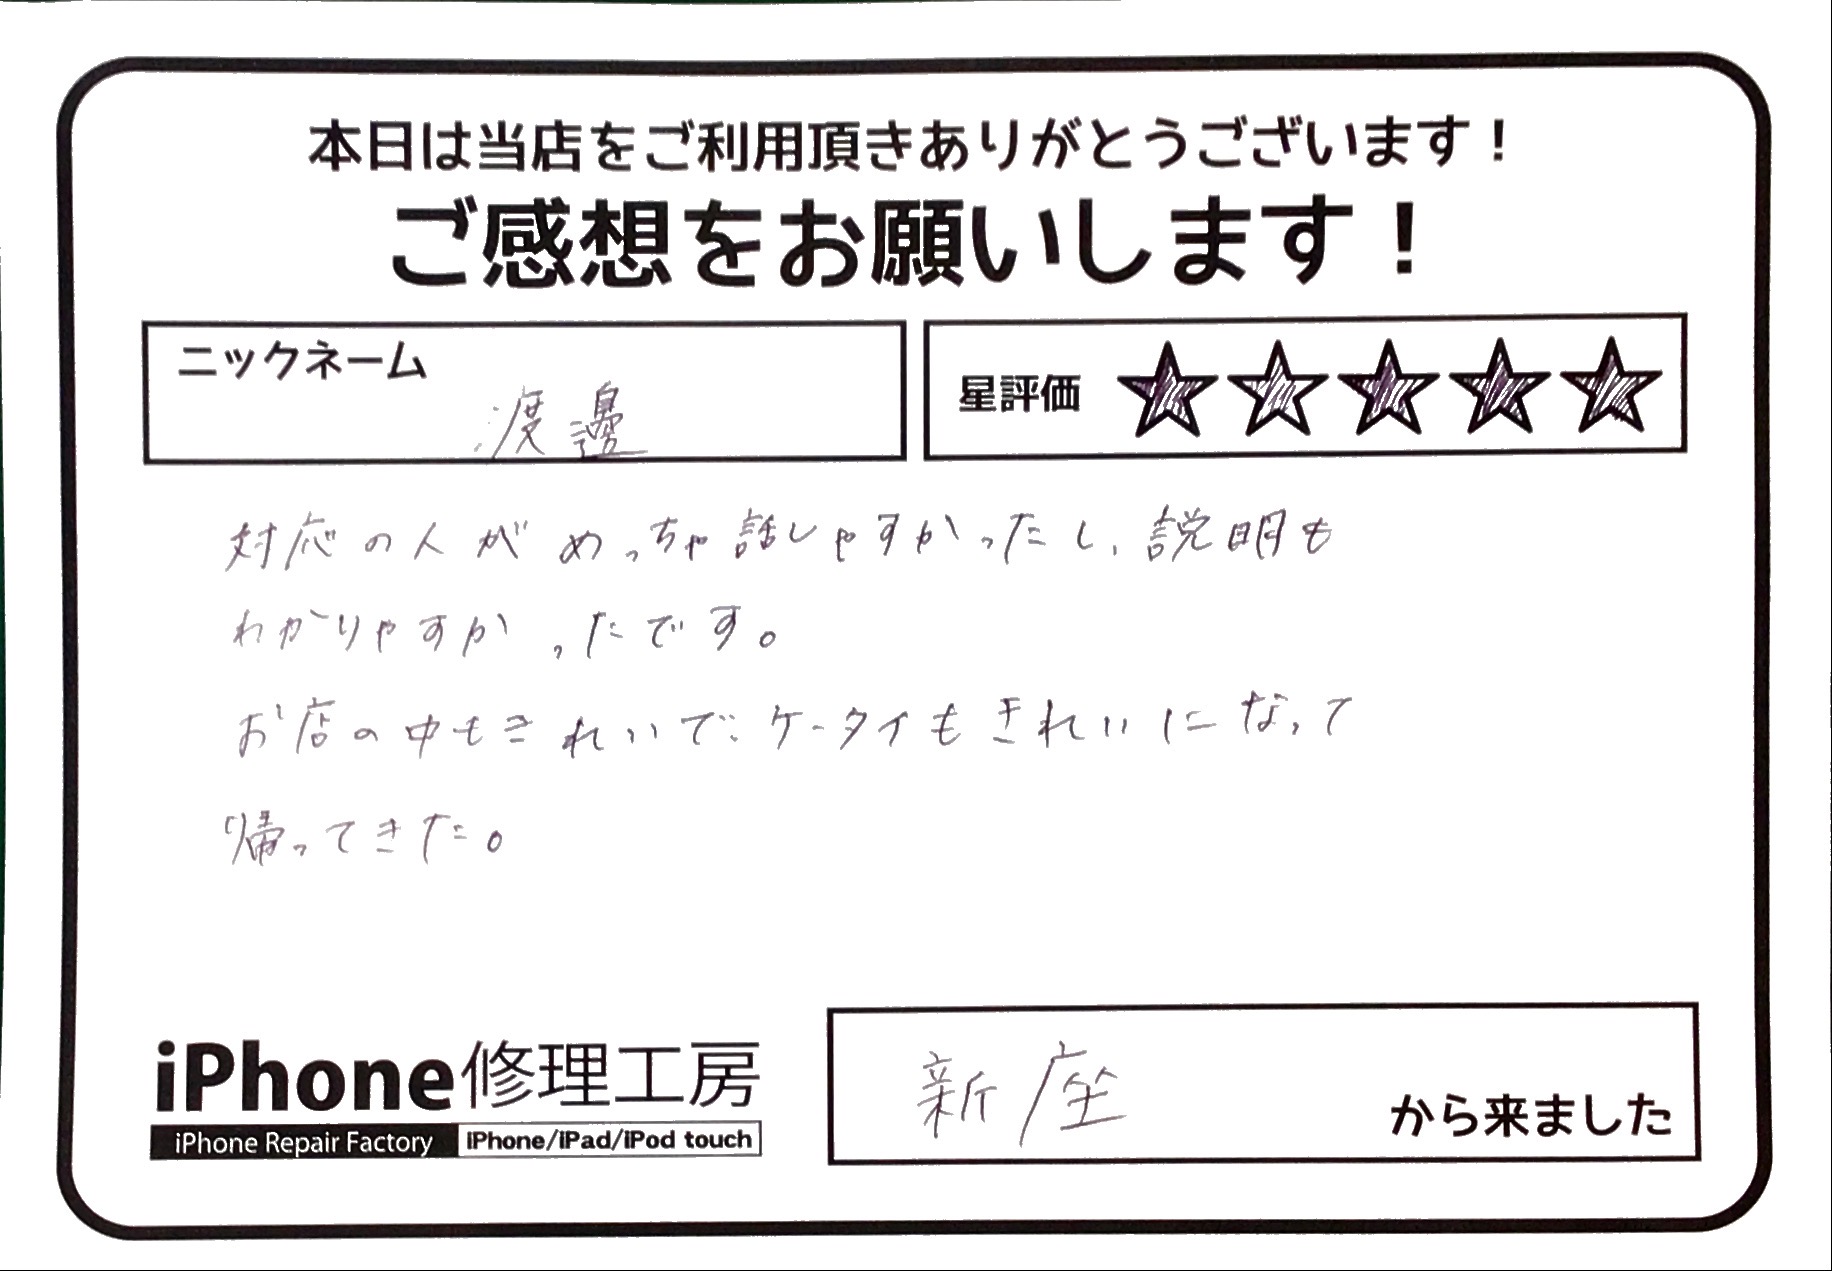 本日は当店をご利用頂きありがとうございます！
ご感想をお願いします！
ニックネーム
渡邊
星評価 ★★★★★
対応の人がめっちゃ話しやすかったし、説明も
わかりやすかったです。
お店の中もきれいで、ケータイもきれいになって
帰ってきた。
iPhone修理工房
iPhone Repair Factory iPhone/iPad/iPod touch
新座 から来ました